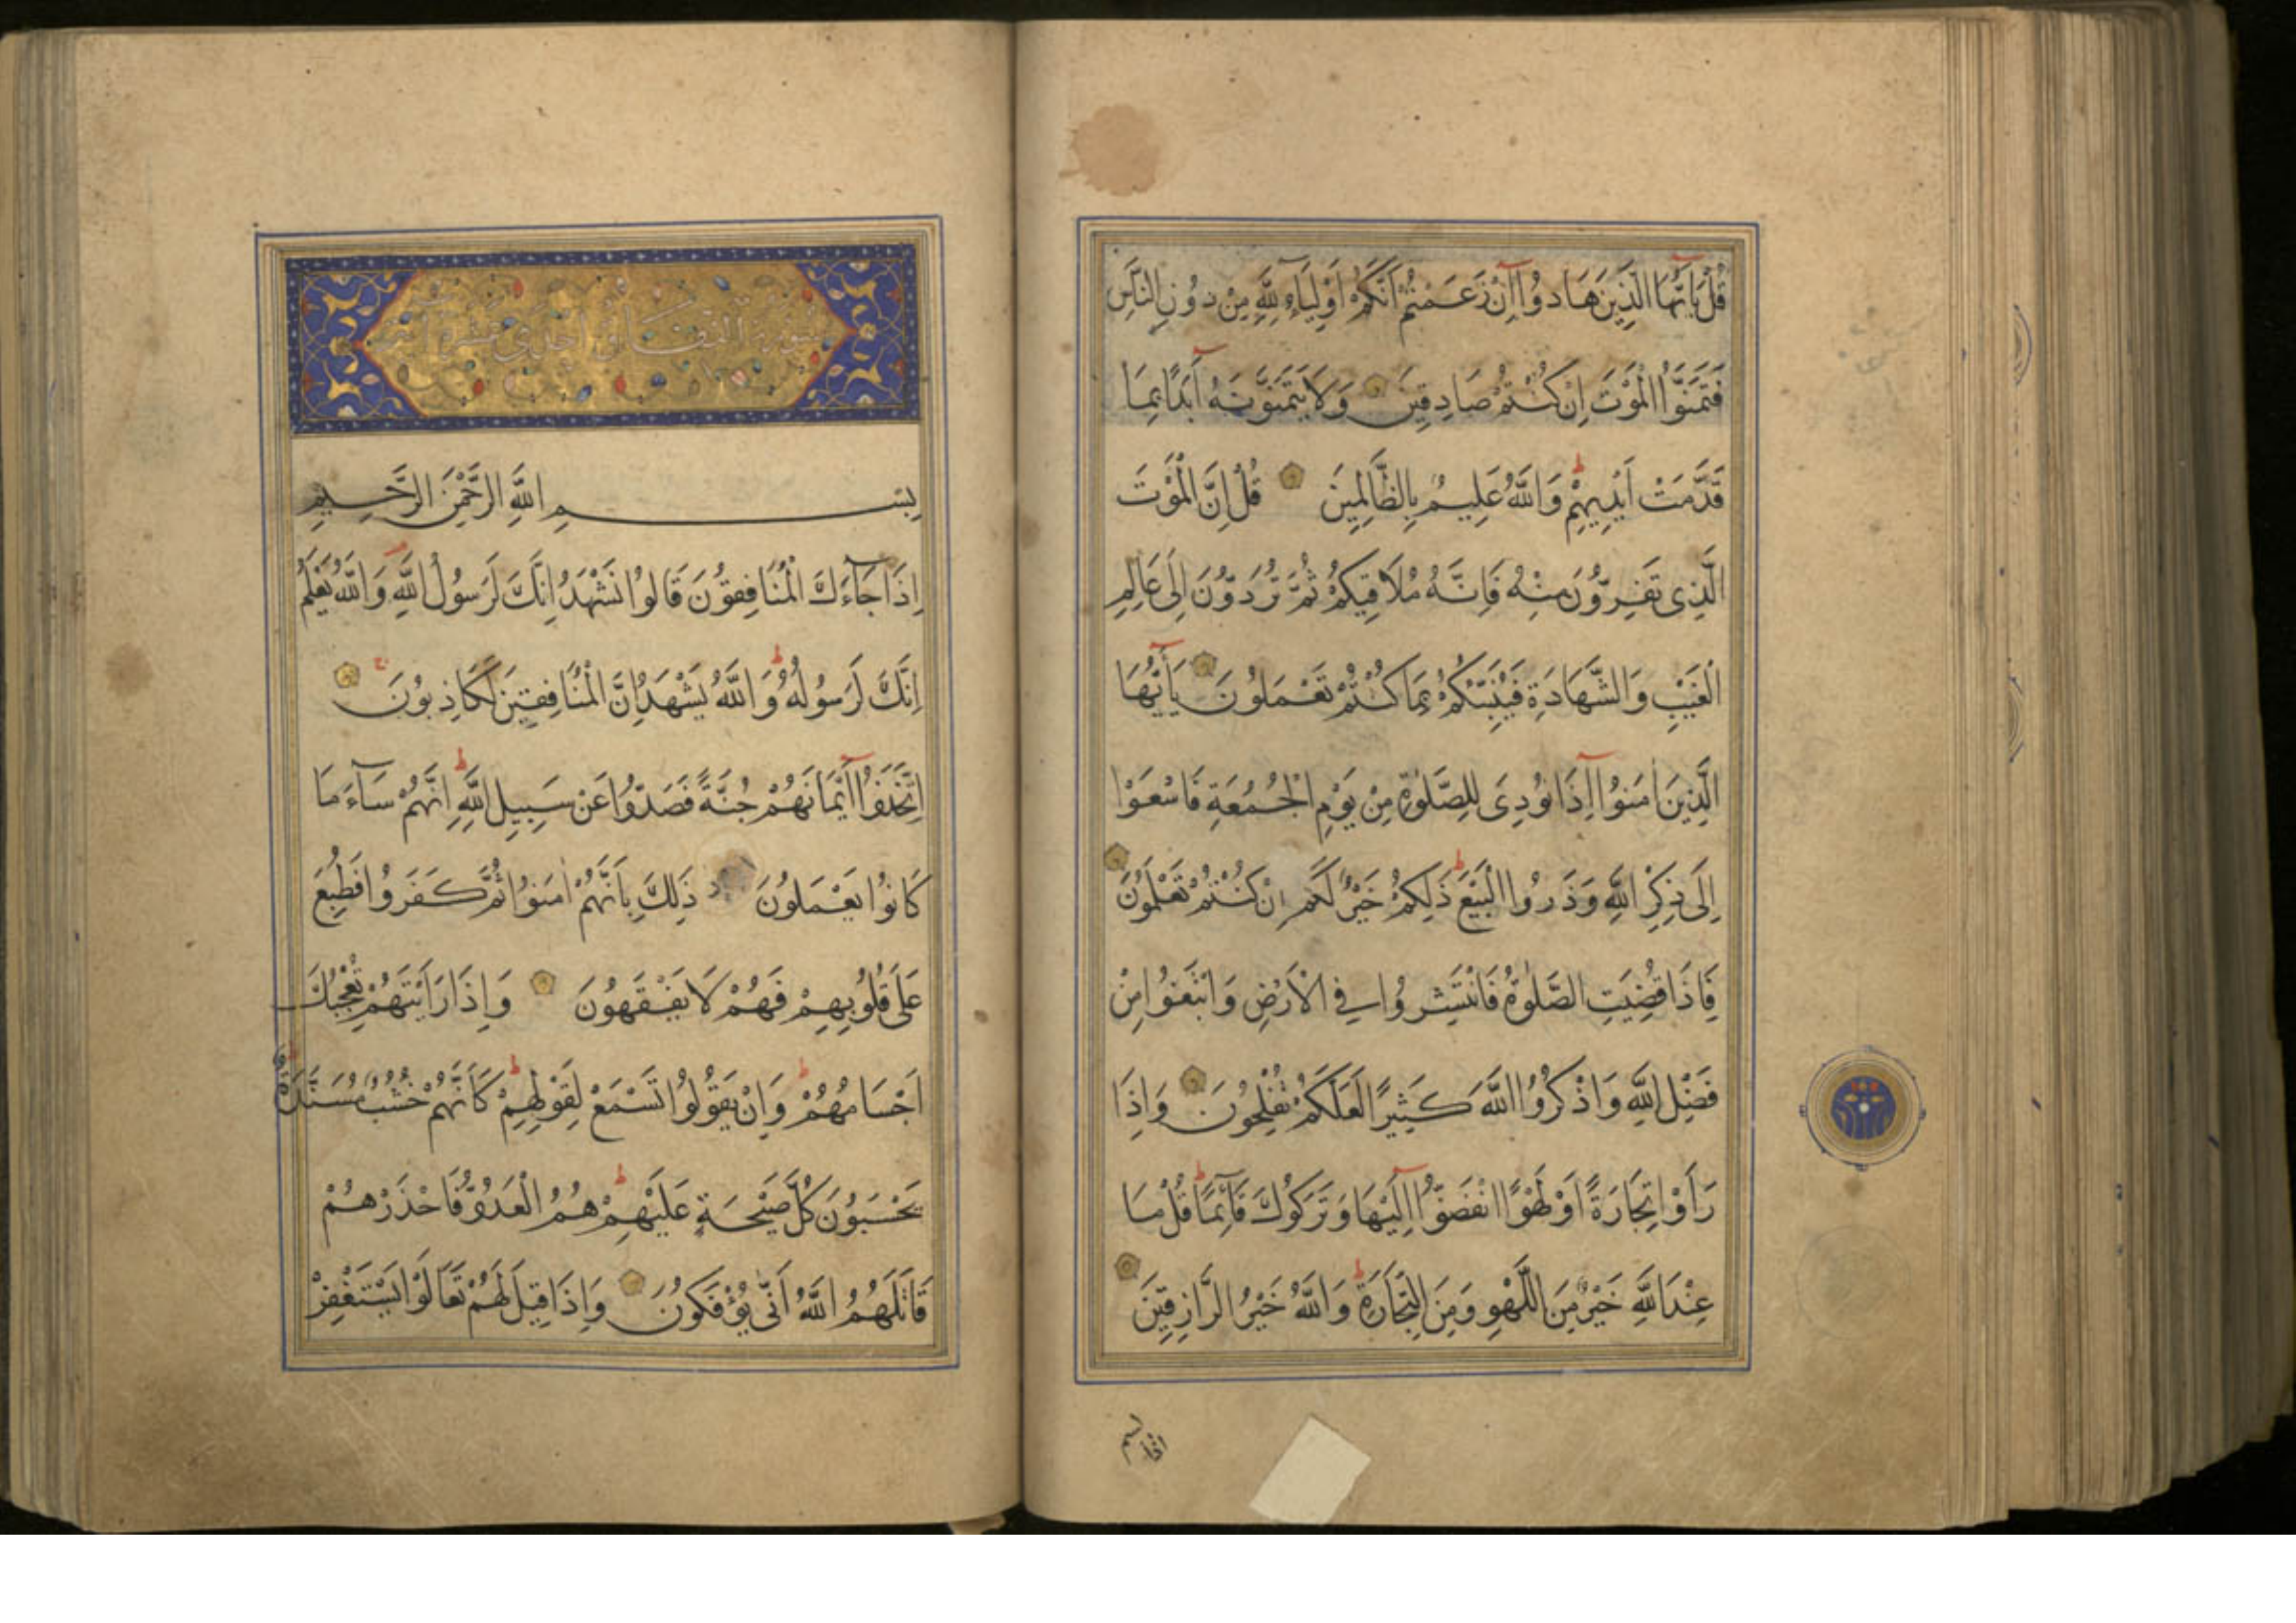 قُلْ يَا أَيُّهَا الَّذِينَ هَادُوا إِنْ زَعَمْتُمْ أَنَّكُمْ أَوْلِيَاءُ لِلَّهِ مِنْ دُونِ النَّاسِ
فَتَمَنَّوُا الْمَوْتَ إِنْ كُنْتُمْ صَادِقِينَ وَلَا يَتَمَنَّوْنَهُ أَبَدًا بِمَا
قَدَّمَتْ أَيْدِيهِمْ وَاللَّهُ عَلِيمٌ بِالظَّالِمِينَ قُلْ إِنَّ الْمَوْتَ
الَّذِى تَفِرُّونَ مِنْهُ فَإِنَّهُ مُلَاقِيكُمْ ثُمَّ تُرَدُّونَ إِلَى عَالِمِ
الْغَيْبِ وَالشَّهَادَةِ فَيُنَبِّئُكُمْ بِمَا كُنْتُمْ تَعْمَلُونَ يَا أَيُّهَا
الَّذِينَ اٰمَنُوا إِذَا نُودِىَ لِلصَّلٰوةِ مِنْ يَوْمِ الْجُمُعَةِ فَاسْعَوْا
إِلَى ذِكْرِ اللَّهِ وَذَرُوا الْبَيْعَ ذَلِكُمْ خَيْرٌ لَكُمْ إِنْ كُنْتُمْ تَعْلَمُونَ
فَإِذَا قُضِيَتِ الصَّلٰوةُ فَانْتَشِرُوا فِي الْأَرْضِ وَابْتَغُوا مِنْ
فَضْلِ اللَّهِ وَاذْكُرُوا اللَّهَ كَثِيرًا لَعَلَّكُمْ تُفْلِحُونَ وَإِذَا
رَأَوْا تِجَارَةً أَوْ لَهْوًا انْفَضُّوا إِلَيْهَا وَتَرَكُوكَ قَائِمًا قُلْ مَا
عِنْدَ اللَّهِ خَيْرٌ مِنَ اللَّهْوِ وَمِنَ التِّجَارَةِ وَاللَّهُ خَيْرُ الرَّازِقِينَ
سورة المنافقون احدى عشرة آية
بِسْمِ اللَّهِ الرَّحْمٰنِ الرَّحِيمِ
إِذَا جَاءَكَ الْمُنَافِقُونَ قَالُوا نَشْهَدُ إِنَّكَ لَرَسُولُ اللَّهِ وَاللَّهُ يَعْلَمُ
إِنَّكَ لَرَسُولُهُ وَاللَّهُ يَشْهَدُ إِنَّ الْمُنَافِقِينَ لَكَاذِبُونَ
اِتَّخَذُوا أَيْمَانَهُمْ جُنَّةً فَصَدُّوا عَنْ سَبِيلِ اللَّهِ إِنَّهُمْ سَاءَ مَا
كَانُوا يَعْمَلُونَ ذَلِكَ بِأَنَّهُمْ اٰمَنُوا ثُمَّ كَفَرُوا فَطُبِعَ
عَلَى قُلُوبِهِمْ فَهُمْ لَا يَفْقَهُونَ وَإِذَا رَأَيْتَهُمْ تُعْجِبُكَ
أَجْسَامُهُمْ وَإِنْ يَقُولُوا تَسْمَعْ لِقَوْلِهِمْ كَأَنَّهُمْ خُشُبٌ مُسَنَّدَةٌ
يَحْسَبُونَ كُلَّ صَيْحَةٍ عَلَيْهِمْ هُمُ الْعَدُوُّ فَاحْذَرْهُمْ
قَاتَلَهُمُ اللَّهُ أَنّٰى يُؤْفَكُونَ وَإِذَا قِيلَ لَهُمْ تَعَالَوْا يَسْتَغْفِرْ